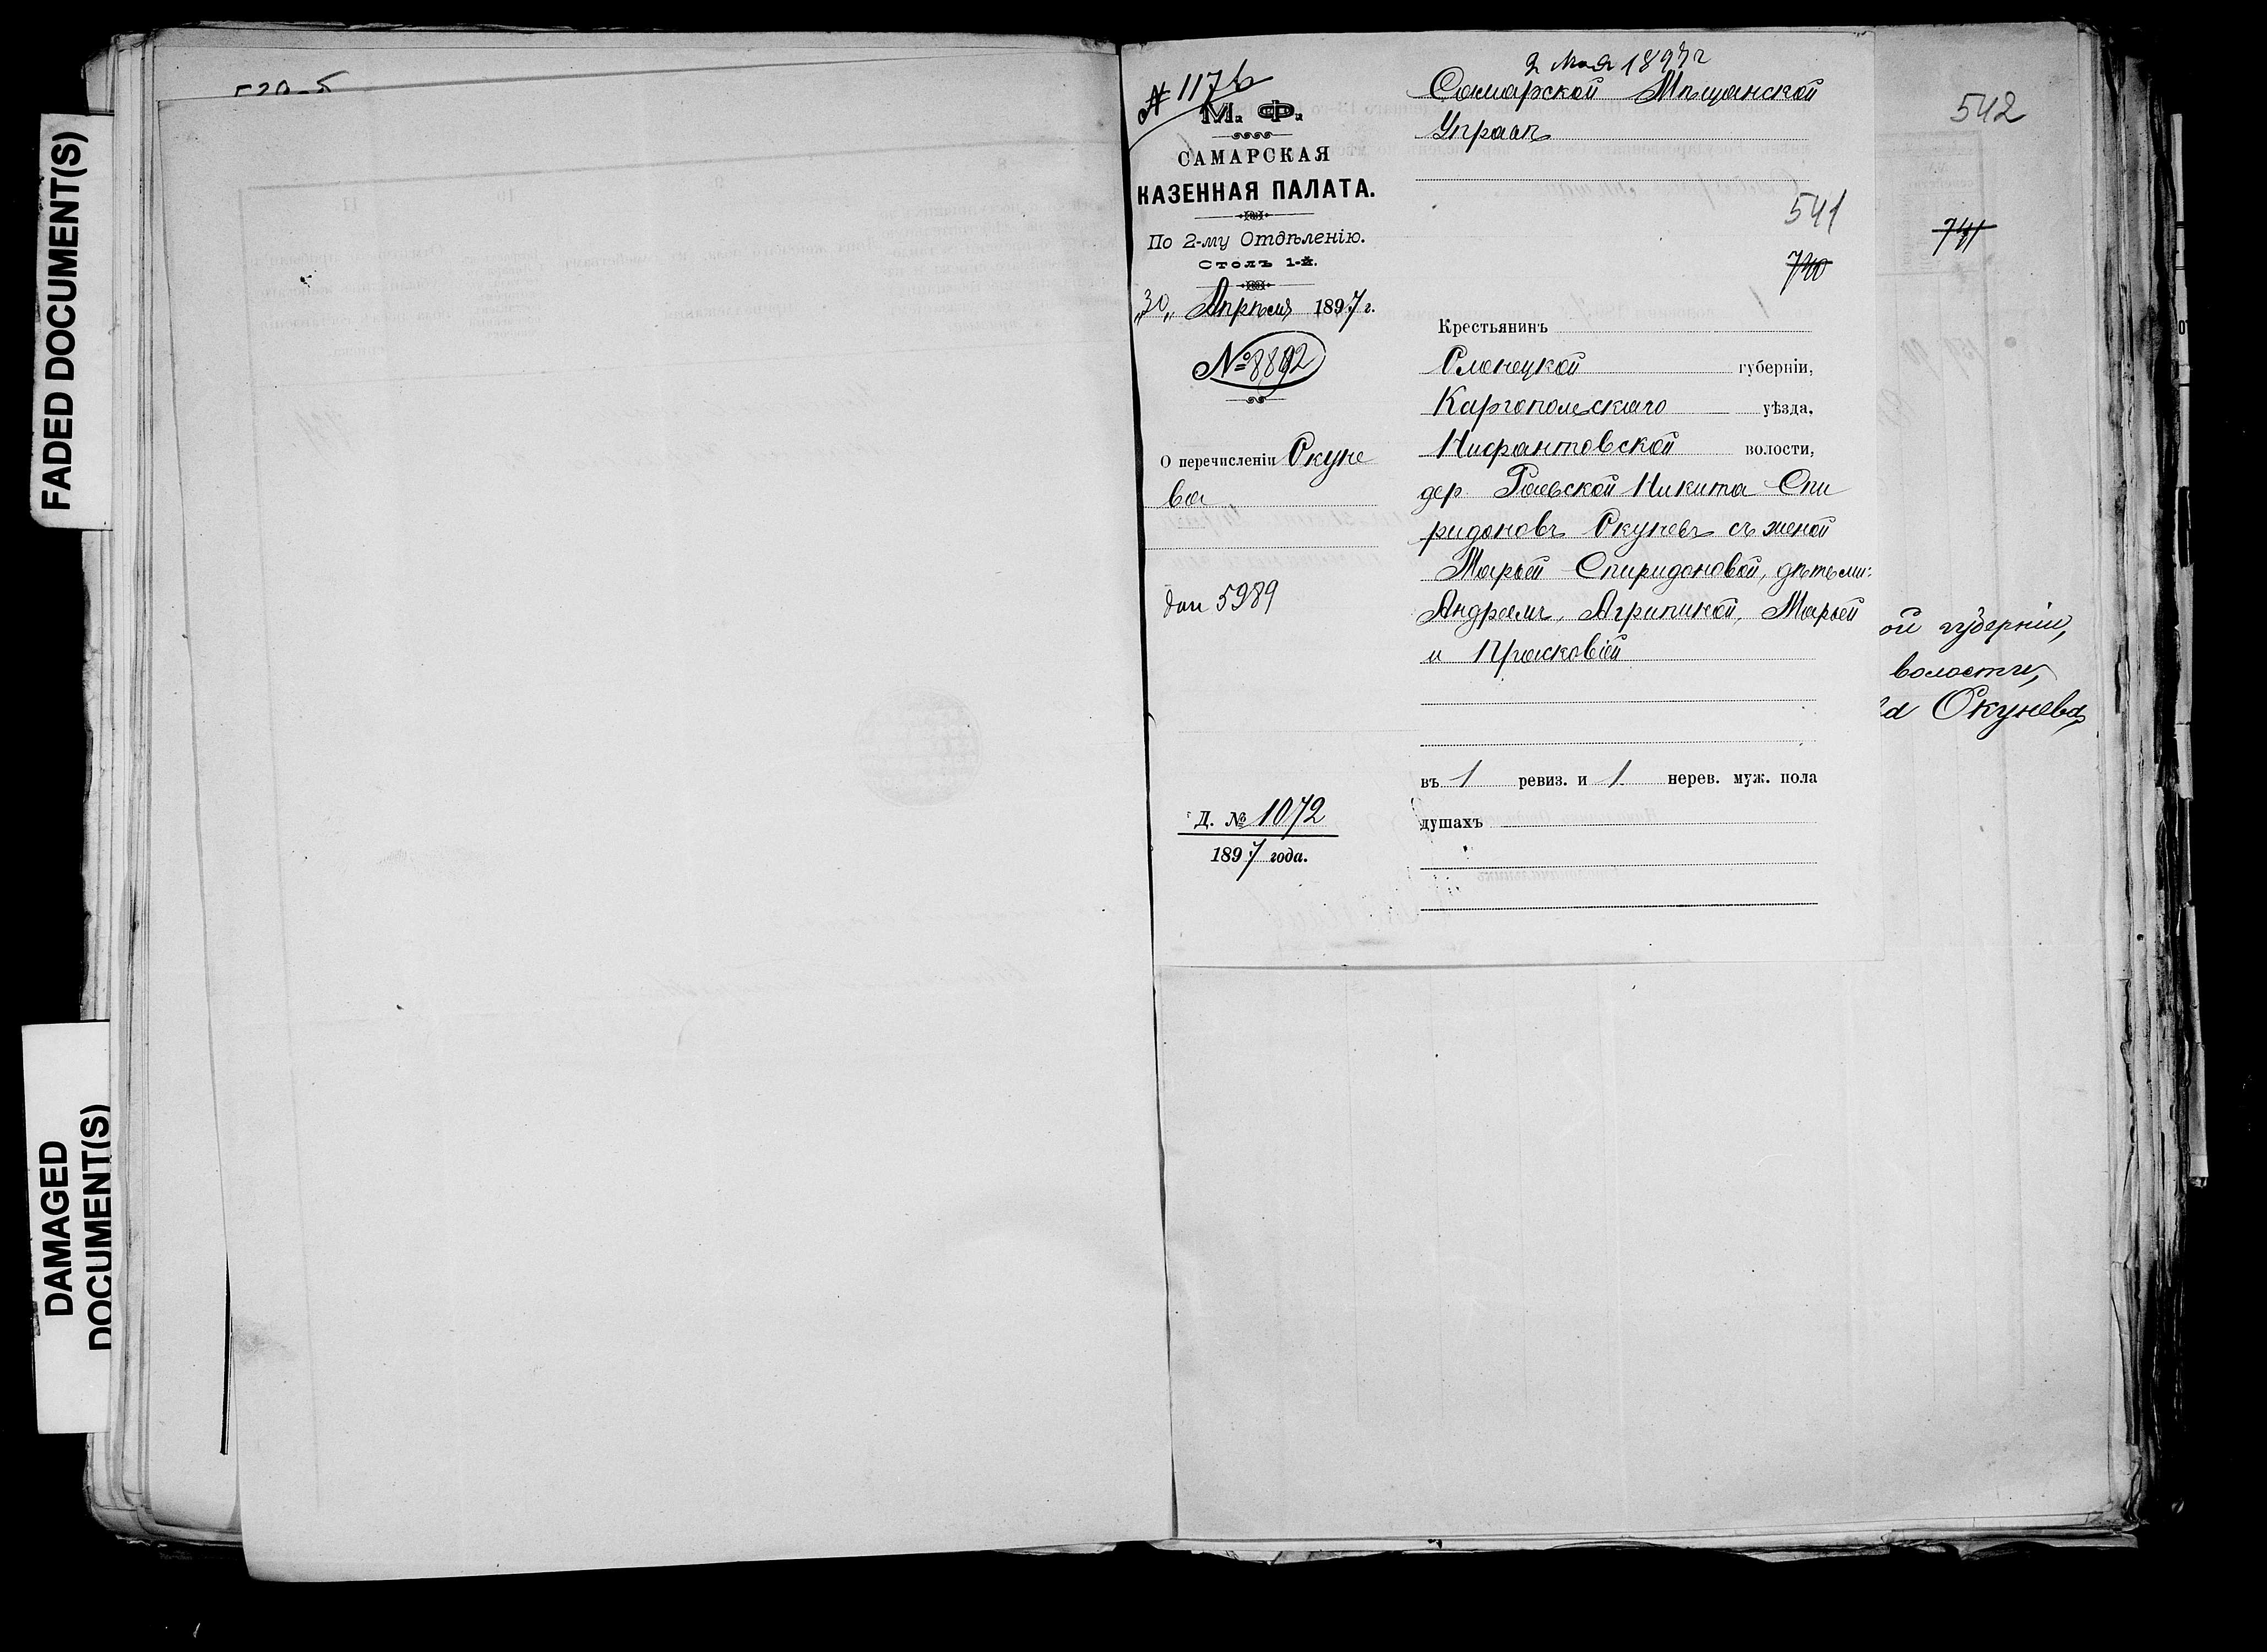 FADED DOCUMENT(S)
DAMAGED
DOCUMENT(S)
№ 1176
М. Ф.
САМАРСКАЯ
КАЗЕННАЯ ПАЛАТА.
По 2-му Отдѣленію.
Столъ 1-й.
„30„ Апрѣля 1897 г.
№ 8892
О перечисленіи Окуне
ва
5989
Д. № 1072
1897 года.
2 Мая 1897 г
Самарской Мѣщанской
Управѣ
541
740
Крестьянинъ
Олонецкой губерніи,
Каргопольскаго уѣзда,
Нифантовской волости,
дер. Никита Спи
ридоновъ Окуневъ съ женой
Марьей Спиридоновой, дѣтьми:
Андреемъ, Аграпиной, Марьей
и Прасковіей
въ 1 ревиз. и 1 нерев. муж. пола
душахъ
542
741
ой губерніи,
волости,
Окунева